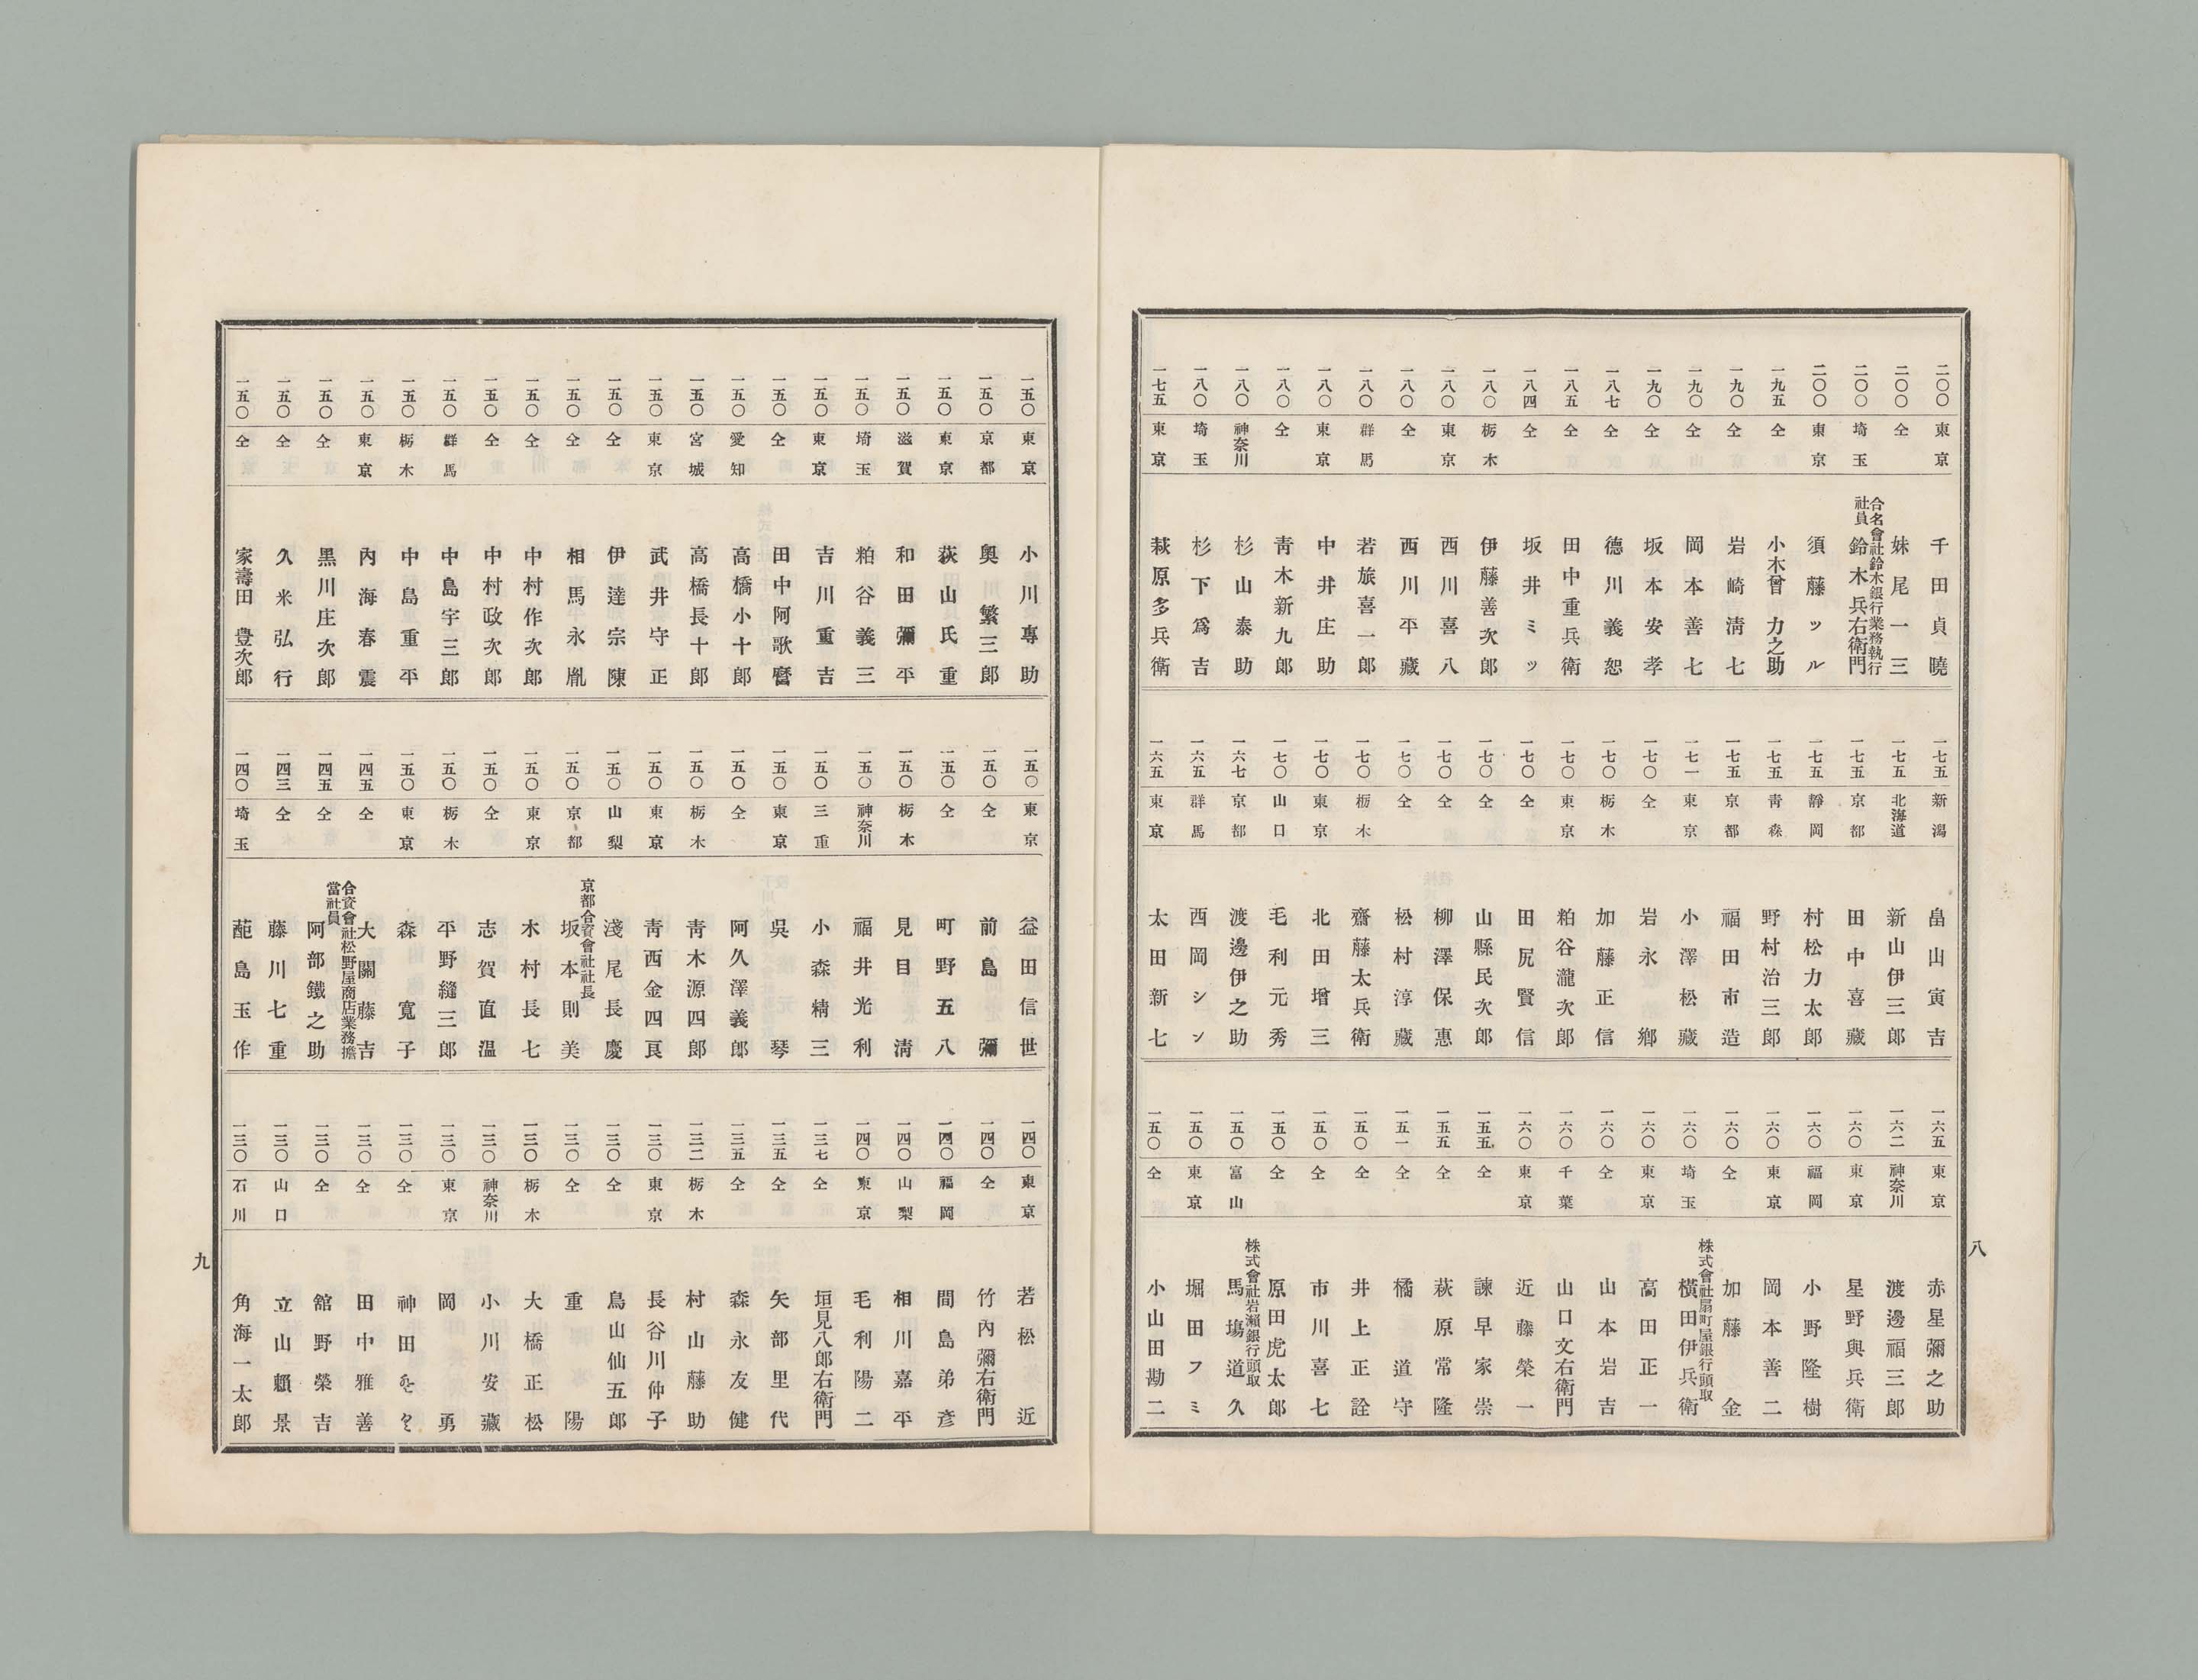 二〇〇 東京 千田貞曉
二〇〇 仝 妹尾一三
二〇〇 埼玉 合名會社鈴木銀行業務執行社員 鈴木兵右衛門
二〇〇 東京 須藤ツル
一九五 仝 小木曾力之助
一九〇 仝 岩崎淸七
一九〇 仝 岡本善七
一九〇 仝 坂本安孝
一八七 仝 德川義恕
一八五 仝 田中重兵衛
一八四 仝 坂井ミツ
一八〇 栃木 伊藤善次郎
一八〇 東京 西川喜八
一八〇 仝 西川平藏
一八〇 群馬 若旅喜一郎
一八〇 東京 中井庄助
一八〇 仝 靑木新九郎
一八〇 神奈川 杉山泰助
一八〇 埼玉 杉下爲吉
一七五 東京 萩原多兵衛
一七五 新潟 畠山寅吉
一七五 北海道 新山伊三郎
一七五 京都 田中喜藏
一七五 靜岡 村松力太郎
一七五 靑森 野村治三郎
一七五 京都 福田市造
一七一 東京 小澤松藏
一七〇 仝 岩永鄕
一七〇 栃木 加藤正信
一七〇 東京 粕谷瀧次郎
一七〇 仝 田尻賢信
一七〇 仝 山縣民次郎
一七〇 仝 柳澤保惠
一七〇 仝 松村淳藏
一七〇 栃木 齋藤太兵衛
一七〇 東京 北田增三
一七〇 山口 毛利元秀
一六七 京都 渡邊伊之助
一六五 群馬 西岡シン
一六五 東京 太田新七
一六五 東京 赤星彌之助
一六二 神奈川 渡邊福三郎
一六〇 東京 星野與兵衛
一六〇 福岡 小野隆樹
一六〇 東京 岡本善二
一六〇 仝 加藤金
一六〇 埼玉 株式會社扇町屋銀行頭取 橫田伊兵衛
一六〇 東京 高田正一
一六〇 仝 山本岩吉
一六〇 千葉 山口文右衛門
一六〇 東京 近藤榮一
一五五 仝 諫早家崇
一五五 仝 萩原常隆
一五一 仝 橘道守
一五〇 仝 井上正詮
一五〇 仝 市川喜七
一五〇 仝 原田虎太郎
一五〇 富山 株式會社岩瀨銀行頭取 馬塲道久
一五〇 東京 堀田フミ
一五〇 仝 小山田勘二
八
一五〇 東京 小川專助
一五〇 京都 奧繁三郎
一五〇 東京 荻山氏重
一五〇 滋賀 和田彌平
一五〇 埼玉 粕谷義三
一五〇 東京 吉川重吉
一五〇 仝 田中阿歌麿
一五〇 愛知 高橋小十郎
一五〇 宮城 高橋長十郎
一五〇 東京 武井守正
一五〇 仝 伊達宗陳
一五〇 仝 相馬永胤
一五〇 仝 中村作次郎
一五〇 仝 中村政次郎
一五〇 群馬 中島宇三郎
一五〇 栃木 中島重平
一五〇 東京 內海春震
一五〇 仝 黑川庄次郎
一五〇 仝 久米弘行
一五〇 仝 家壽田豊次郎
一五〇 東京 益田信世
一五〇 仝 前島彌
一五〇 仝 町野五八
一五〇 栃木 見目淸
一五〇 神奈川 福井光利
一五〇 三重 小森精三
一五〇 東京 吳琴
一五〇 仝 阿久澤義郎
一五〇 栃木 靑木源四郎
一五〇 東京 靑西金四良
一五〇 山梨 淺尾長慶
一五〇 京都 京都合資會社社長 坂本則美
一五〇 東京 木村長七
一五〇 仝 志賀直温
一五〇 栃木 平野縫三郎
一五〇 東京 森寬子
一四五 仝 大關藤吉
一四五 仝 合資會社松野屋商店業務擔當社員 阿部鐵之助
一四三 仝 藤川七重
一四〇 埼玉 蓜島玉作
一四〇 東京 若松近
一四〇 仝 竹內彌右衛門
一四〇 福岡 間島弟彦
一四〇 山梨 相川嘉平
一四〇 東京 毛利陽二
一三七 仝 垣見八郎右衛門
一三五 仝 矢部里代
一三五 仝 森永友健
一三二 栃木 村山藤助
一三〇 東京 長谷川仲子
一三〇 仝 鳥山仙五郎
一三〇 仝 重陽
一三〇 栃木 大橋正松
一三〇 神奈川 小川安藏
一三〇 東京 岡勇
一三〇 仝 神田
一三〇 仝 田中雅善
一三〇 仝 舘野榮吉
一三〇 山口 立山賴景
一三〇 石川 角海一太郎
九